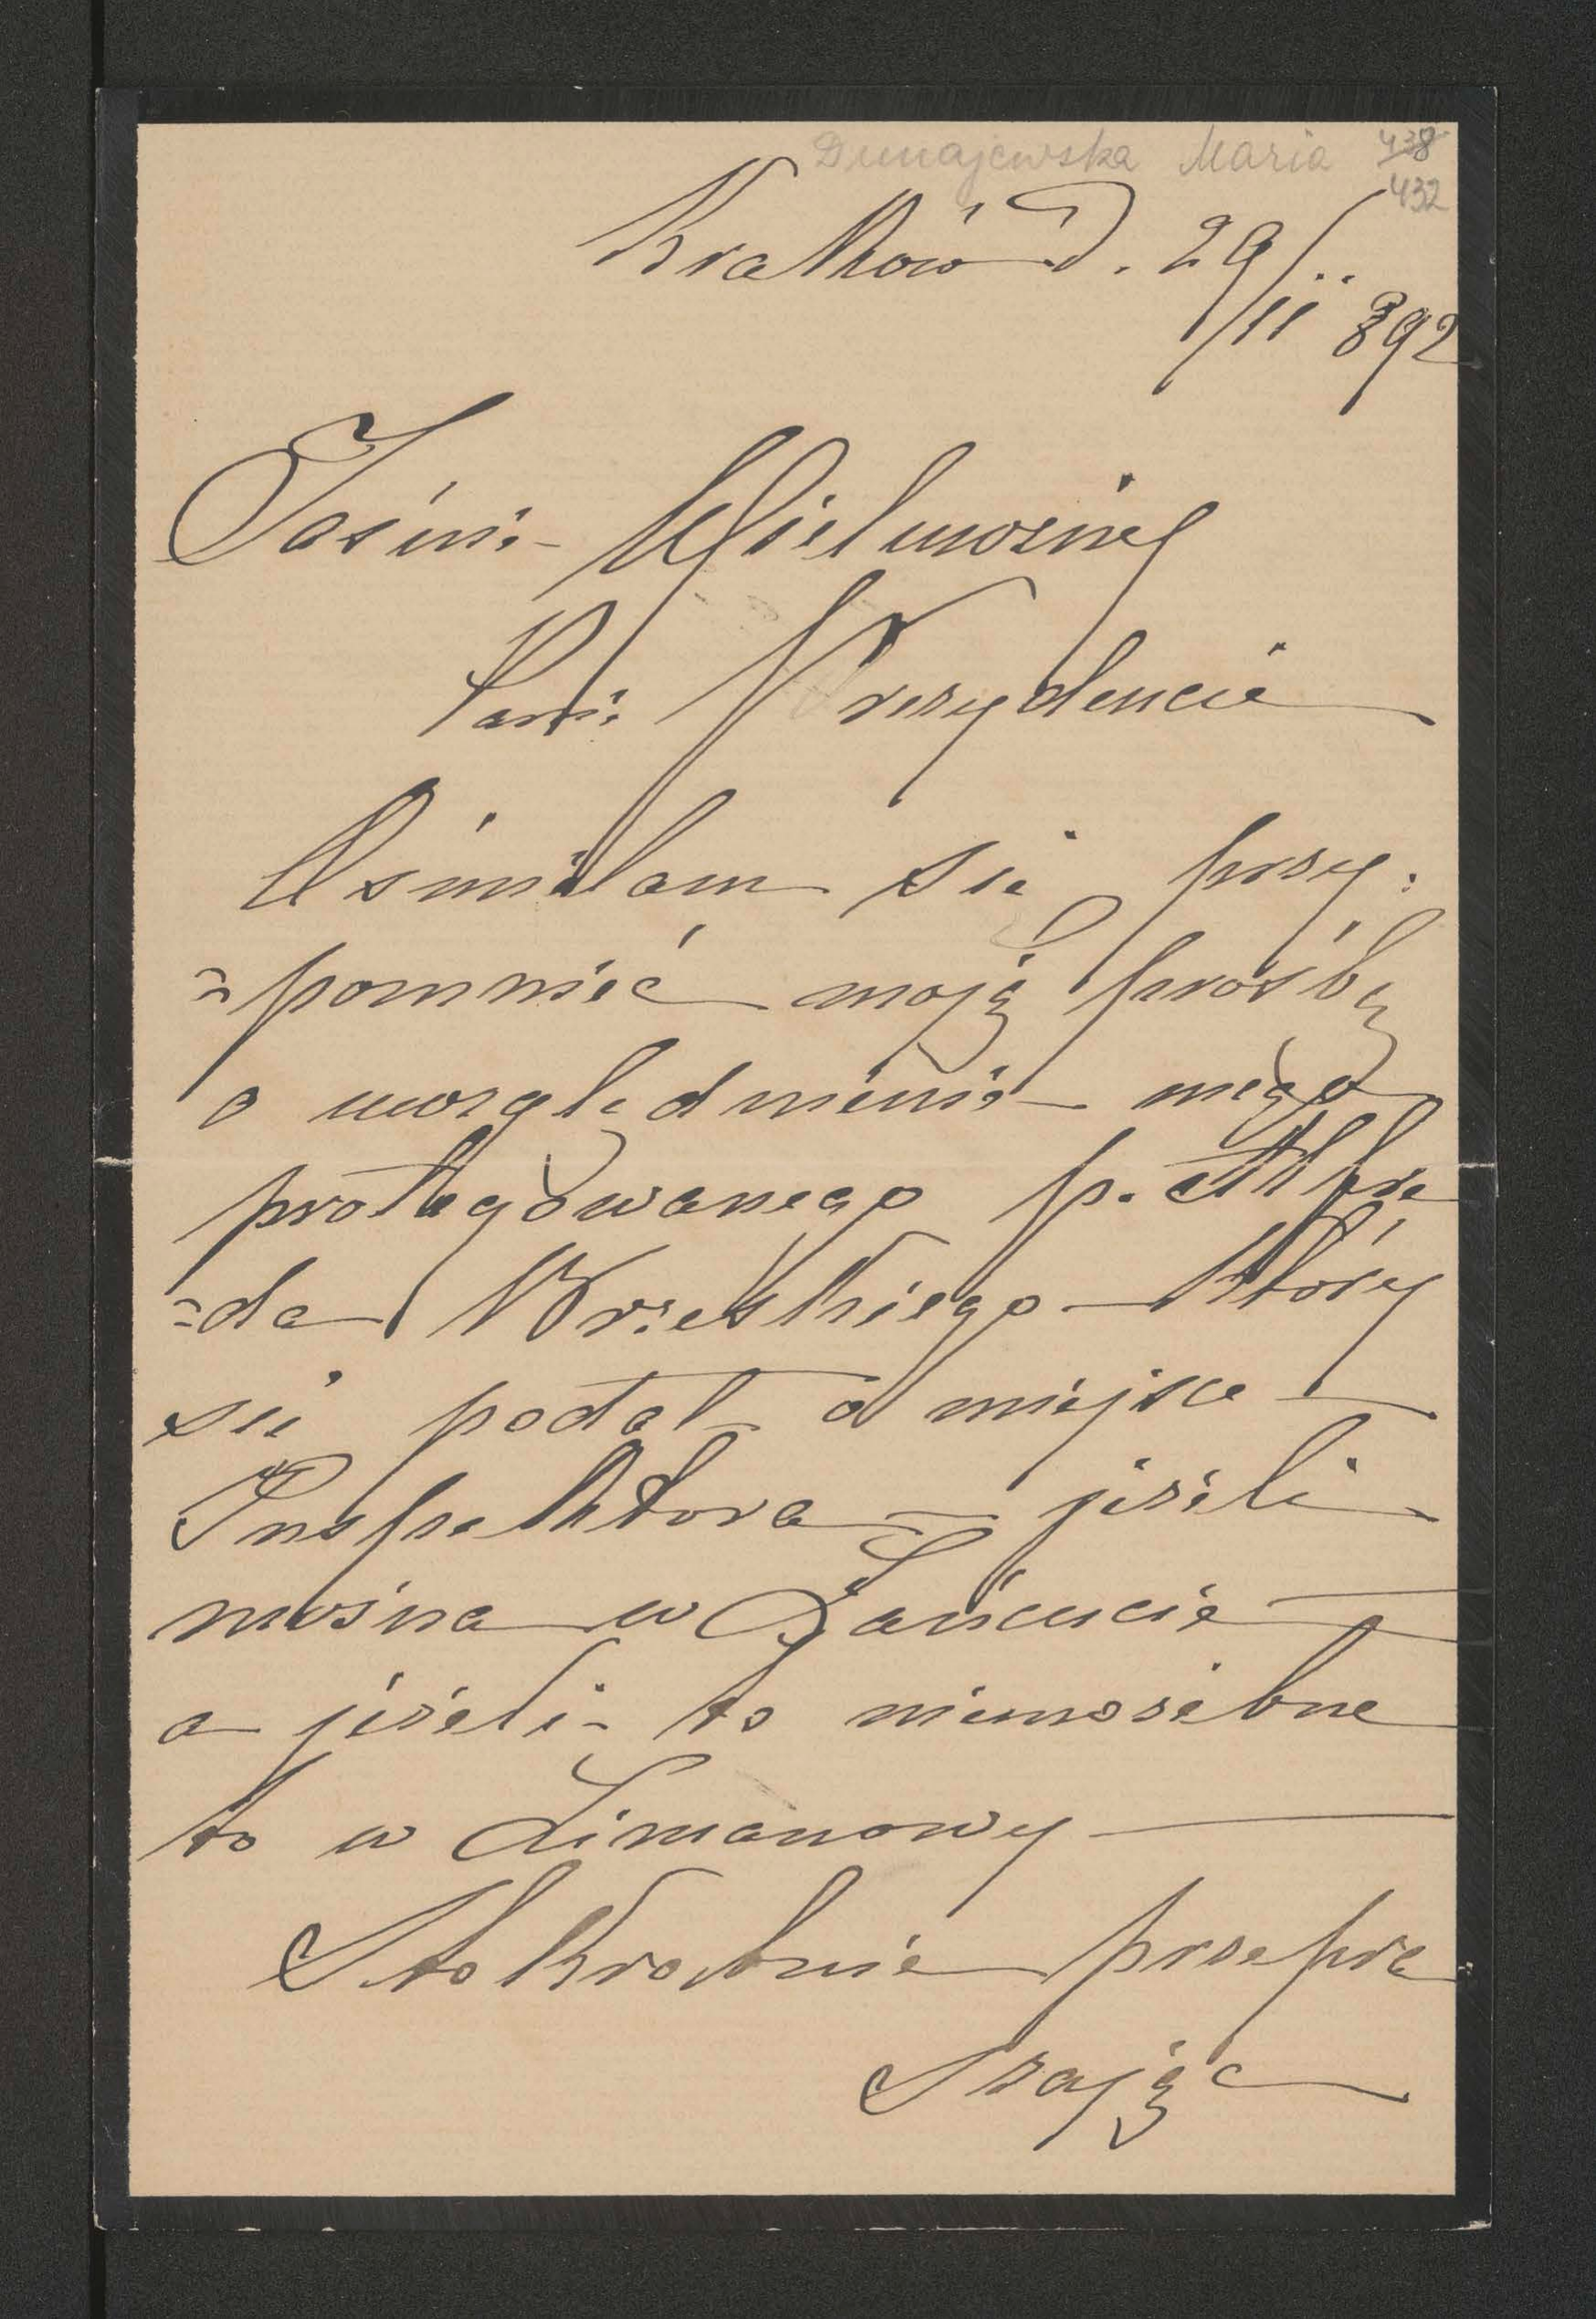 Dunajewska Maria 438
432
Kraków d. 29/11 892
Jaśnie Wielmożny
Panie Prezydencie
Ośmielam się przy:
=pomnieć moją prośbę
o uwzględnienie mego
protegowanego p. Alfre
=da Wrzeskiego który
się podał o miejsce
Inspektora – jeżeli
można w Łańcucie
a jeżeli to niemożebne
to w Limanowy
Stokrotnie przepra
szając